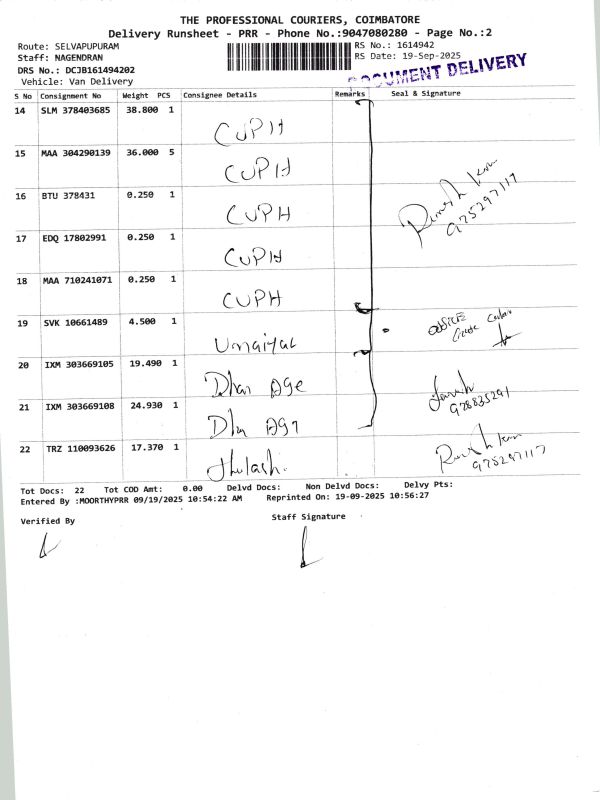 THE PROFESSIONAL COURIERS, COIMBATORE
Delivery Runsheet - PRR - Phone No.:9047080280 - Page No.:2
Route: SELVAPUPURAM
RS No.: 1614942
Staff: NAGENDRAN
RS Date: 19-Sep-2025
DRS No.: DCJB161494202
Vehicle: Van Delivery
DOCUMENT DELIVERY
S No Consignment No Weight PCS Consignee Details Remarks Seal & Signature
14 SLM 378403685 38.800 1 CUPH
15 MAA 304290139 36.000 5 CUPH
16 BTU 378431 0.250 1 CUPH
17 EDQ 17802991 0.250 1 CUPH
18 MAA 710241071 0.250 1 CUPH
19 SVK 10661489 4.500 1 Umaiyal
20 IXM 303669105 19.490 1 Dhan Age
21 IXM 303669108 24.930 1
22 TRZ 110093626 17.370 1 thulash.
Tot Docs: 22 Tot COD Amt: 0.00 Delvd Docs: Non Delvd Docs: Delvy Pts:
Entered By :MOORTHYPRR 09/19/2025 10:54:22 AM Reprinted On: 19-09-2025 10:56:27
Verified By
Staff Signature